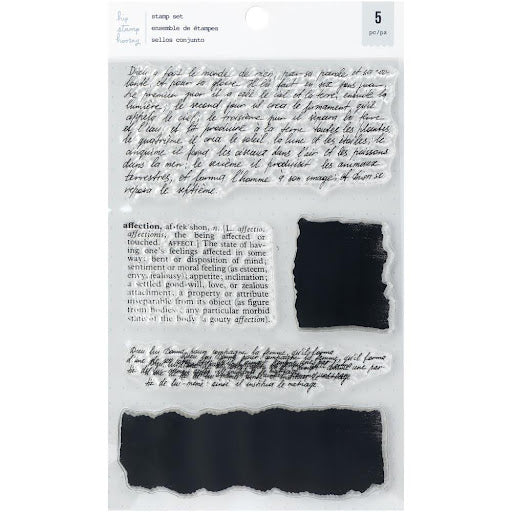 hip
stamp
hooray
stamp set
ensemble de étampes
sellos conjunto
5
pc/pa
Dieu a fait le monde de rien, par sa parole et sa vo-
lonté, et pour sa gloire. Il l'a fait en six jours,
le premier jour il a créé le ciel et la terre, ensuite la
lumière; le second jour il créa le firmament, qu'il
appela le ciel, le troisième jour il sépara la terre
et l'eau, et fit produire à la terre toutes les plantes,
le quatrième il créa le soleil, la lune et les étoiles; le
cinquième il fit les oiseaux dans l'air et les poissons
dans la mer, le sixième il produisit les animaux
terrestres, et forma l'homme à son image. et Dieu se
reposa le septième.
affection, af-fek´shon, n. [L. affectio,
affectionis, the being affected or
touched. AFFECT.] The state of hav-
ing one's feelings affected in some
way; bent or disposition of mind;
sentiment or moral feeling (as esteem,
envy, jealousy); appetite; inclination;
a settled good-will, love, or zealous
attachment; a property or attribute
inseparable from its object (as figure
from bodies); any particular morbid
state of the body (gouty affection).
Dieu lui donna pour compagne la femme, qu'il forma
d'une
de lui-même ainsi il institua le mariage.